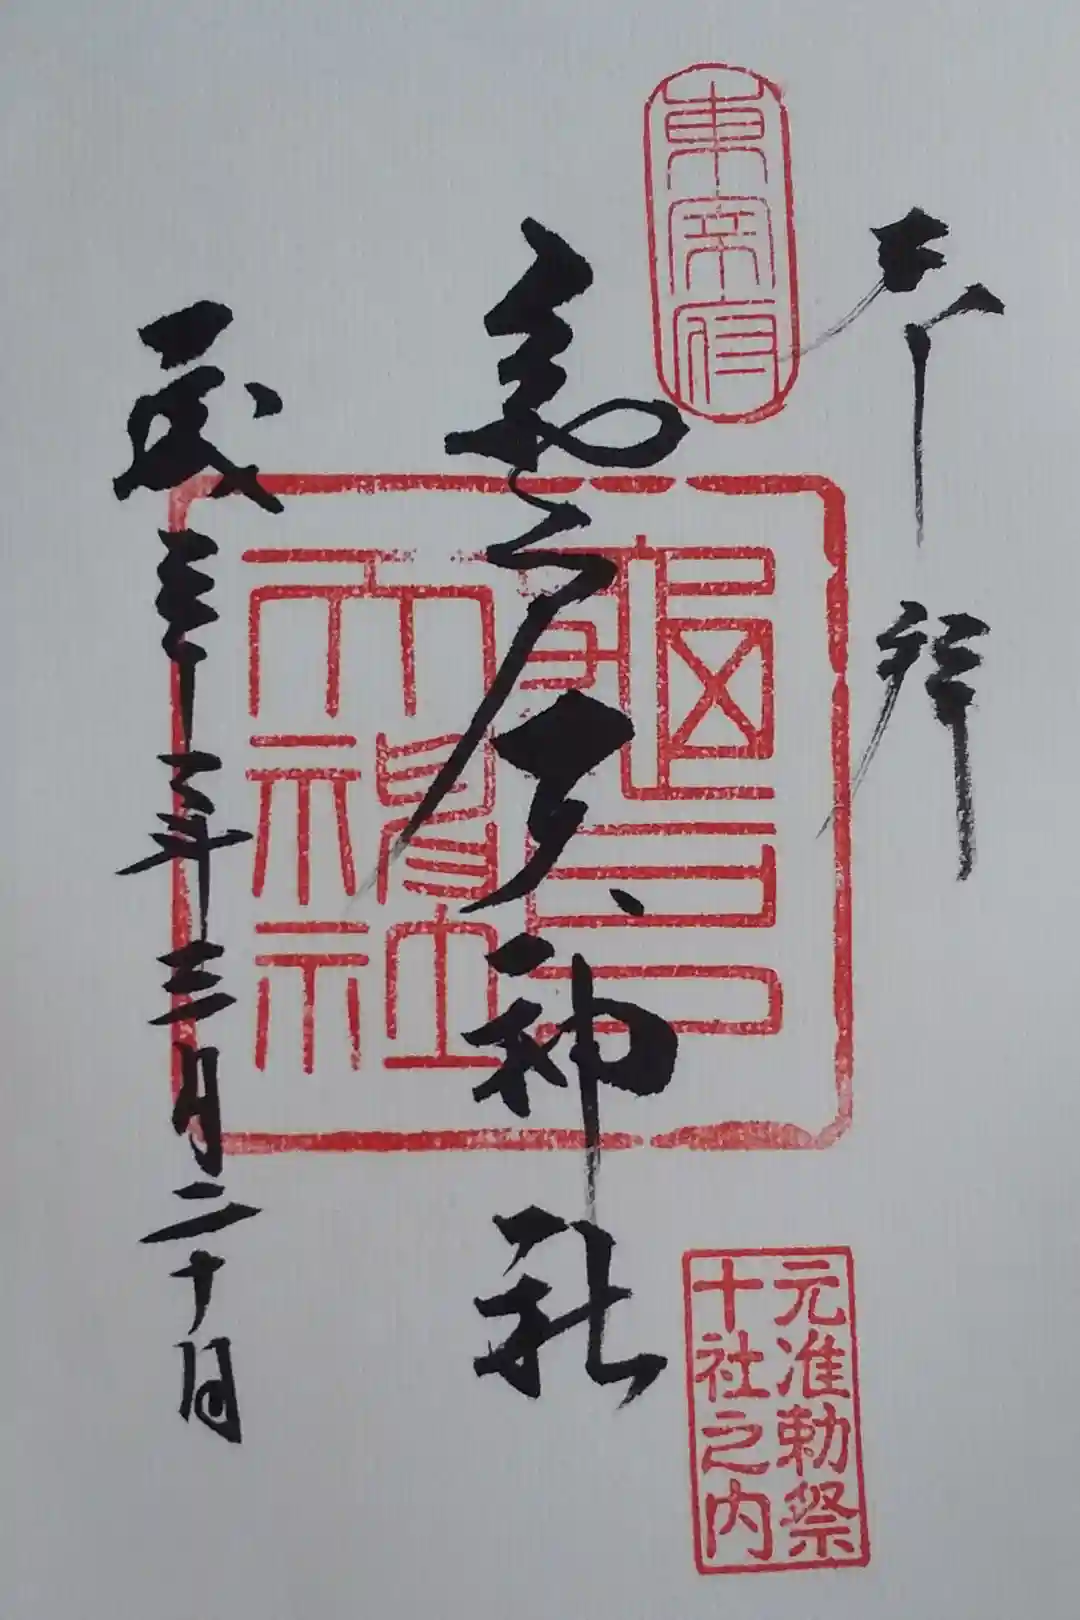 奉拝
東宰府
亀戸天神社
龜戸
天神社
平成二十二年三月二十日
元准勅祭
十社之内